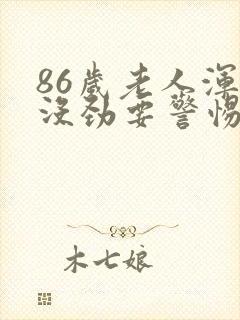 86歲老人渾
沒劲要警惕
木七娘